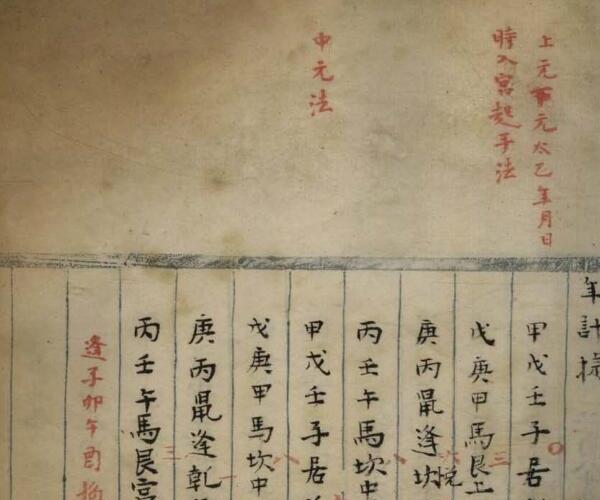 上元下元太乙年月日
時入宮起手法
中元法
年計掾
甲戊壬子居
戊庚甲馬艮上
三
庚丙鼠逢坎
六兌
丙壬午馬坎中
八
甲戊壬子居
戊庚甲馬坎中
八
庚丙鼠逢乾
一
丙壬午馬艮宮
三
逢子卯午酉